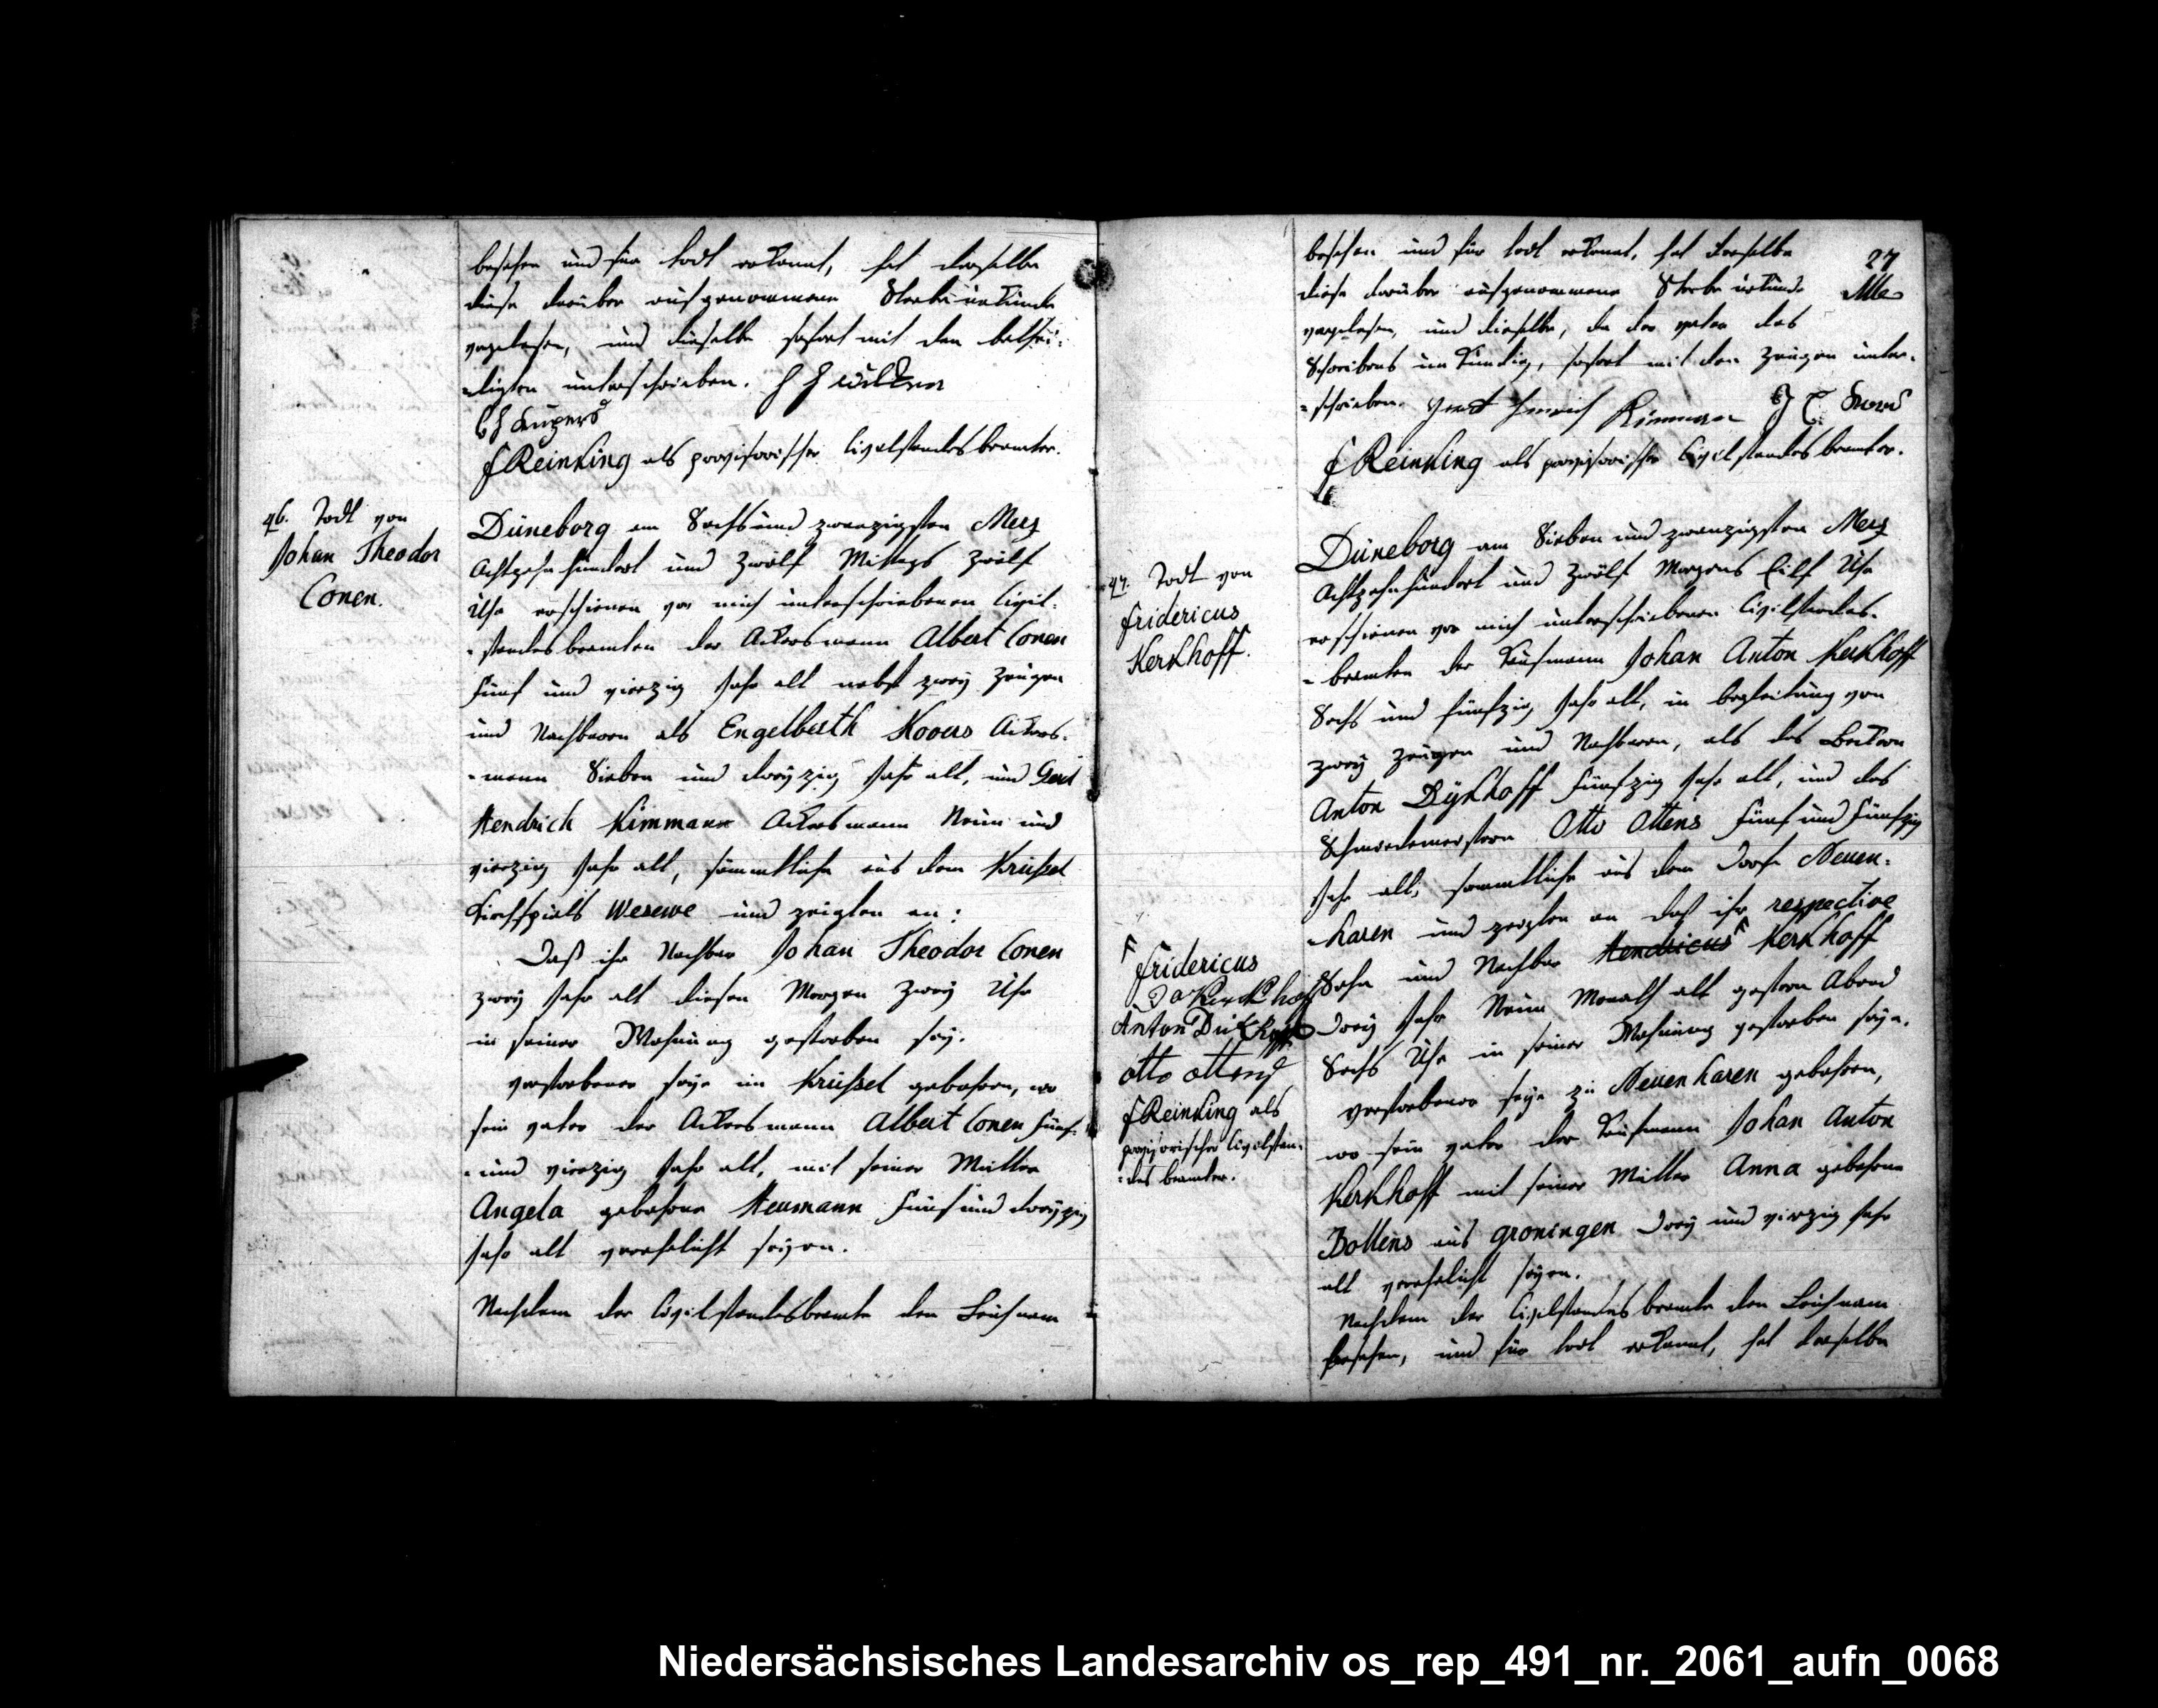 besehen und für todt erkannt, hat derselbe
diese darüber aufgenommene Sterbeurkunde
vorgelesen, und dieselbe sofort mit den bethei-
-ligten unterschrieben. H H Wilken
C H Kupers
F Reinking als provisorischer Civilstandesbeamter.
46. Todt von
Johan Theodor
Conen.
Düneborg am Sechs und zwanzigsten Merz
Achtzehnhundert und Zwölf Mittags Zwölf
Uhr erschienen vor mich unterschriebenen Civil-
-standesbeamten der Ackersmann Albert Conen
Fünf und vierzig Jahr alt nebst zwey Zeugen
und Nachbaren als Engelberth Kovers Ackers-
-mann Sieben und dreyzig Jahr alt, und Gerd
Hendrich Kimmann Ackersmann Neun und
vierzig Jahr alt, sämmtliche aus dem Krüßel
Kirchspiels Wesewe und zeigten an:
Daß ihr Nachbar Johan Theodor Conen
zwey Jahr alt diesen Morgen Zwey Uhr
in seiner Wohnung gestorben sey.
Verstorbener seye im Krüßel gebohren, wo
sein Vater der Ackersmann Albert Conen Fünf-
-und vierzig Jahr alt, mit seiner Mutter
Angela gebohrne Heumann Fünf und dreyzig
Jahr alt verehelicht seyen.
Nachdem der Civilstandesbeamte den Leichnam
27
besehen und für todt erkannt, hat derselbe
diese darüber aufgenommene Sterbeurkunde
vorgelesen, und dieselbe, da der Vater des
Schreibens unkundig, sofort mit den Zeugen unter-
-schrieben. Gerd Henrich Kimmann
F Reinking als provisorischer Civilstandesbeamter.
47. Todt von
Fridericus
Kerkhoff.
Düneborg am Sieben und zwanzigsten Merz
Achtzehnhundert und Zwölf Morgens Eilf Uhr
erschienen vor mich unterschriebenen Civilstandes-
-beamten der Kaufmann Johan Anton Kerkhoff
Sechs und fünfzig Jahr alt, in begleitung von
zwey Zeugen und Nachbaren, als des
Anton Dykhoff Fünfzig Jahr alt, und des
Otto Ottens Fünf und Fünfzig
Jahr alt, sammtliche aus dem Dorfe Neuen-
-haren und zeigten an daß ihr respective
Sohn und Nachbar Hendricus Kerkhoff
Drey Jahr Neun Monath alt gestern Abend
Sechs Uhr in seiner Wohnung gestorben seye.
Verstorbener seye zu Neuenharen gebohren,
wo sein Vater der Kaufmann Johan Anton
Kerkhoff mit seiner Mutter Anna gebohrne
Bottens aus groningen Drey und vierzig Jahr
alt verehelicht seyen.
Nachdem der Civilstandesbeamte den Leichnam
besehen, und für todt erkannt, hat derselbe
Fridericus
J a Kerckhof
Anton Dükhoff
otto ottens
F Reinking als
provisorischer Civilstan-
-des beamter.
Niedersächsisches Landesarchiv os_rep_491_nr._2061_aufn_0068